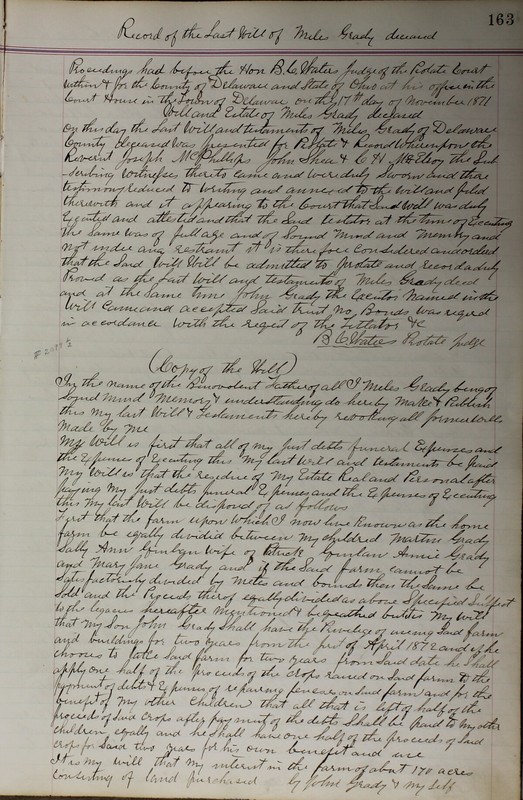 163
Record of the Last Will of Miles Grady deceased
Proceedings had before the Hon B. C. Waters Judge of the Probate Court
within & for the County of Delaware and State of Ohio at his office in the
Court House in the Town of Delaware on the 17th day of November 1871
Will and Estate of Miles Grady deceased
On this day the Last Will and testaments of Miles Grady of Delaware
County deceased was presented for Probate & Record Whereupon the
Reverent Joseph McPhillips John Shea & C H McElroy the Sub
scribing Witnesses thereto came and were duly Sworn and there
testimony reduced to Writing and annexed to the Will and filed
therewith and it appearing to the Court that Said Will was duly
Executed and attested and that the Said testator at the time of Executing
the Same was of full age and of Sound Mind and Memory and
not under any restraint it is therefore Considered and ordered
that the Said Will Will be admitted to Probate and record as duly
Proved as the Last Will and testaments of Miles Grady decd
and at the Same time John Grady the Executor Named in the
Will Came and accepted Said trust No Bonds was
in accordance with the of the Testator &c
B. C. Waters Probate Judge
(Copy of the Will)
In the name of the Benevolent Father of all I Miles Grady being of
Sound Mind Memory & understanding do hereby Make & Publish
this my last Will & Testaments hereby revoking all former wills
Made by Me
My Will is first that all of my Just debts funeral Expenses and
the Expenses of Executing this My last Will and testaments be paid
My Will is that the residue of My Estate Real and Personal after
paying My Just debts funeral Expenses and the Expenses of Executing
this My last Will be disposed of as follows
First that the farm upon Which I now live Known as the home
farm be equally divided between my children Martin Grady
Sally Ann wife of Patrick Annie Grady
and Mary Jane Grady and if the Said farm cannot be
Satisfactorily divided by Metes and bounds then the Same be
Sold and the Proceeds thereof equally divided as above Specified Subject
to the legacies hereafter Mentioned & bequeathed but it is My Will
that my Son John Grady Shall have the Privelege of using Said farm
and buildings for two years from the first of April 1872 and if he
chooses to take Said farm for two years from said date he Shall
apply one half of the proceeds of the crops raised on Said farm to the
payment of debts & Expenses of repairing fences on Said farm and for the
benefit of My other Children that all that is left of half of the
proceeds of Said Crops after payment of the debts Shall be paid to My other
children equally and he Shall have one half of the proceeds of Said
crops for Said two years for his own benefit and use
It is my Will that my interest in the farm of about 170 acres
Consisting of land purchased by John Grady & My Self